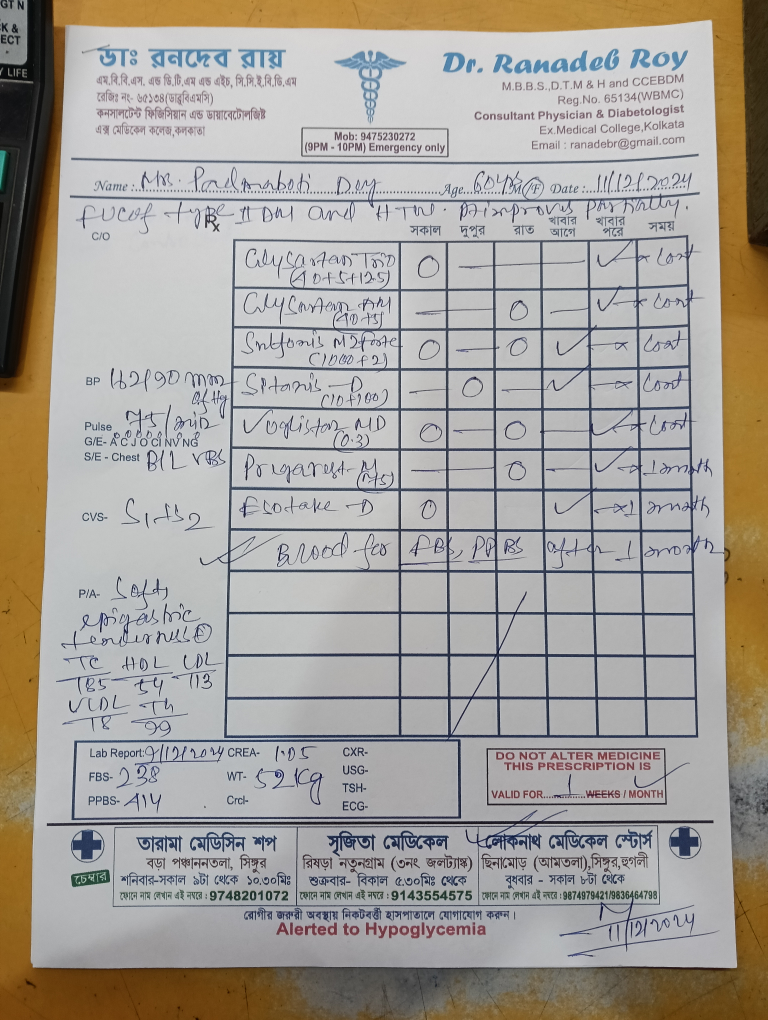 GT N
CK &
ECT
Y LIFE
ডাঃ রনদেব রায়
এম.বি.বি.এস. এন্ড ডি.টি.এম এন্ড এইচ, সি.সি.ই.বি.ডি.এম
রেজিঃ নং- ৬৫১৩৪(ডাব্লুবিএমসি)
কনসালটেন্ট ফিজিসিয়ান এন্ড ডায়াবেটোলজিষ্ট
এক্স মেডিকেল কলেজ,কলকাতা
Mob: 9475230272
(9PM - 10PM) Emergency only
Dr. Ranadeb Roy
M.B.B.S.,D.T.M & H and CCEBDM
Reg.No. 65134(WBMC)
Consultant Physician & Diabetologist
Ex.Medical College,Kolkata
Email : ranadebr@gmail.com
Name :.. Mrs. Padmabati Dey Age 60 yrs M/F Date : 11/12/2024
FUC of type II DM and HTN. Pt improves partially.
C/O Rx সকাল দুপুর রাত খাবার আগে খাবার পরে সময়
Glysartan Trio (40+5+12.5) O — — — ✓ x Cont
Glysartan AM (40+5) — — O — ✓ x Cont
M2 Forte (1000+2) O — O ✓ — x Cont
Sitanis - D (10+100) — O — ✓ — x Cont
Voglistar MD (0.3) O — O — ✓ x Cont
— — O — ✓ x 1 month
Esotake - D O ✓ — x 1 month
✓ Blood for FBS, PPBS after 1 month
BP 162/90 mm of Hg
Pulse 75/min
G/E- A C J O C I N V N G
S/E - Chest B/L VBS
CVS- S1+S2
P/A- Soft,
epigastric
tenderness ⊕
TC HDL LDL
185 54 113
VLDL TG
18 99
Lab Report: 9/12/2024 CREA- 1.05 CXR-
FBS- 238 WT- 52 Kg USG-
PPBS- 414 Crcl- TSH-
ECG-
DO NOT ALTER MEDICINE
THIS PRESCRIPTION IS
VALID FOR.....1.....WEEKS / MONTH
চেম্বার
তারামা মেডিসিন শপ
বড়া পঞ্চাননতলা, সিঙ্গুর
শনিবার-সকাল ৯টা থেকে ১০.৩০মিঃ
ফোনে নাম লেখান এই নম্বরে : 9748201072
সৃজিতা মেডিকেল
রিষড়া নতুনগ্রাম (৩নং জলট্যাঙ্ক)
শুক্রবার- বিকাল ৫.৩০মিঃ থেকে
ফোনে নাম লেখান এই নম্বরে : 9143554575
লোকনাথ মেডিকেল স্টোর্স
ছিনামোড় (আমতলা),সিঙ্গুর,হুগলী
বুধবার - সকাল ৮টা থেকে
ফোনে নাম লেখান এই নম্বরে : 9874979421/9836464798
রোগীর জরুরী অবস্থায় নিকটবর্ত্তী হাসপাতালে যোগাযোগ করুন।
Alerted to Hypoglycemia
11/12/2024